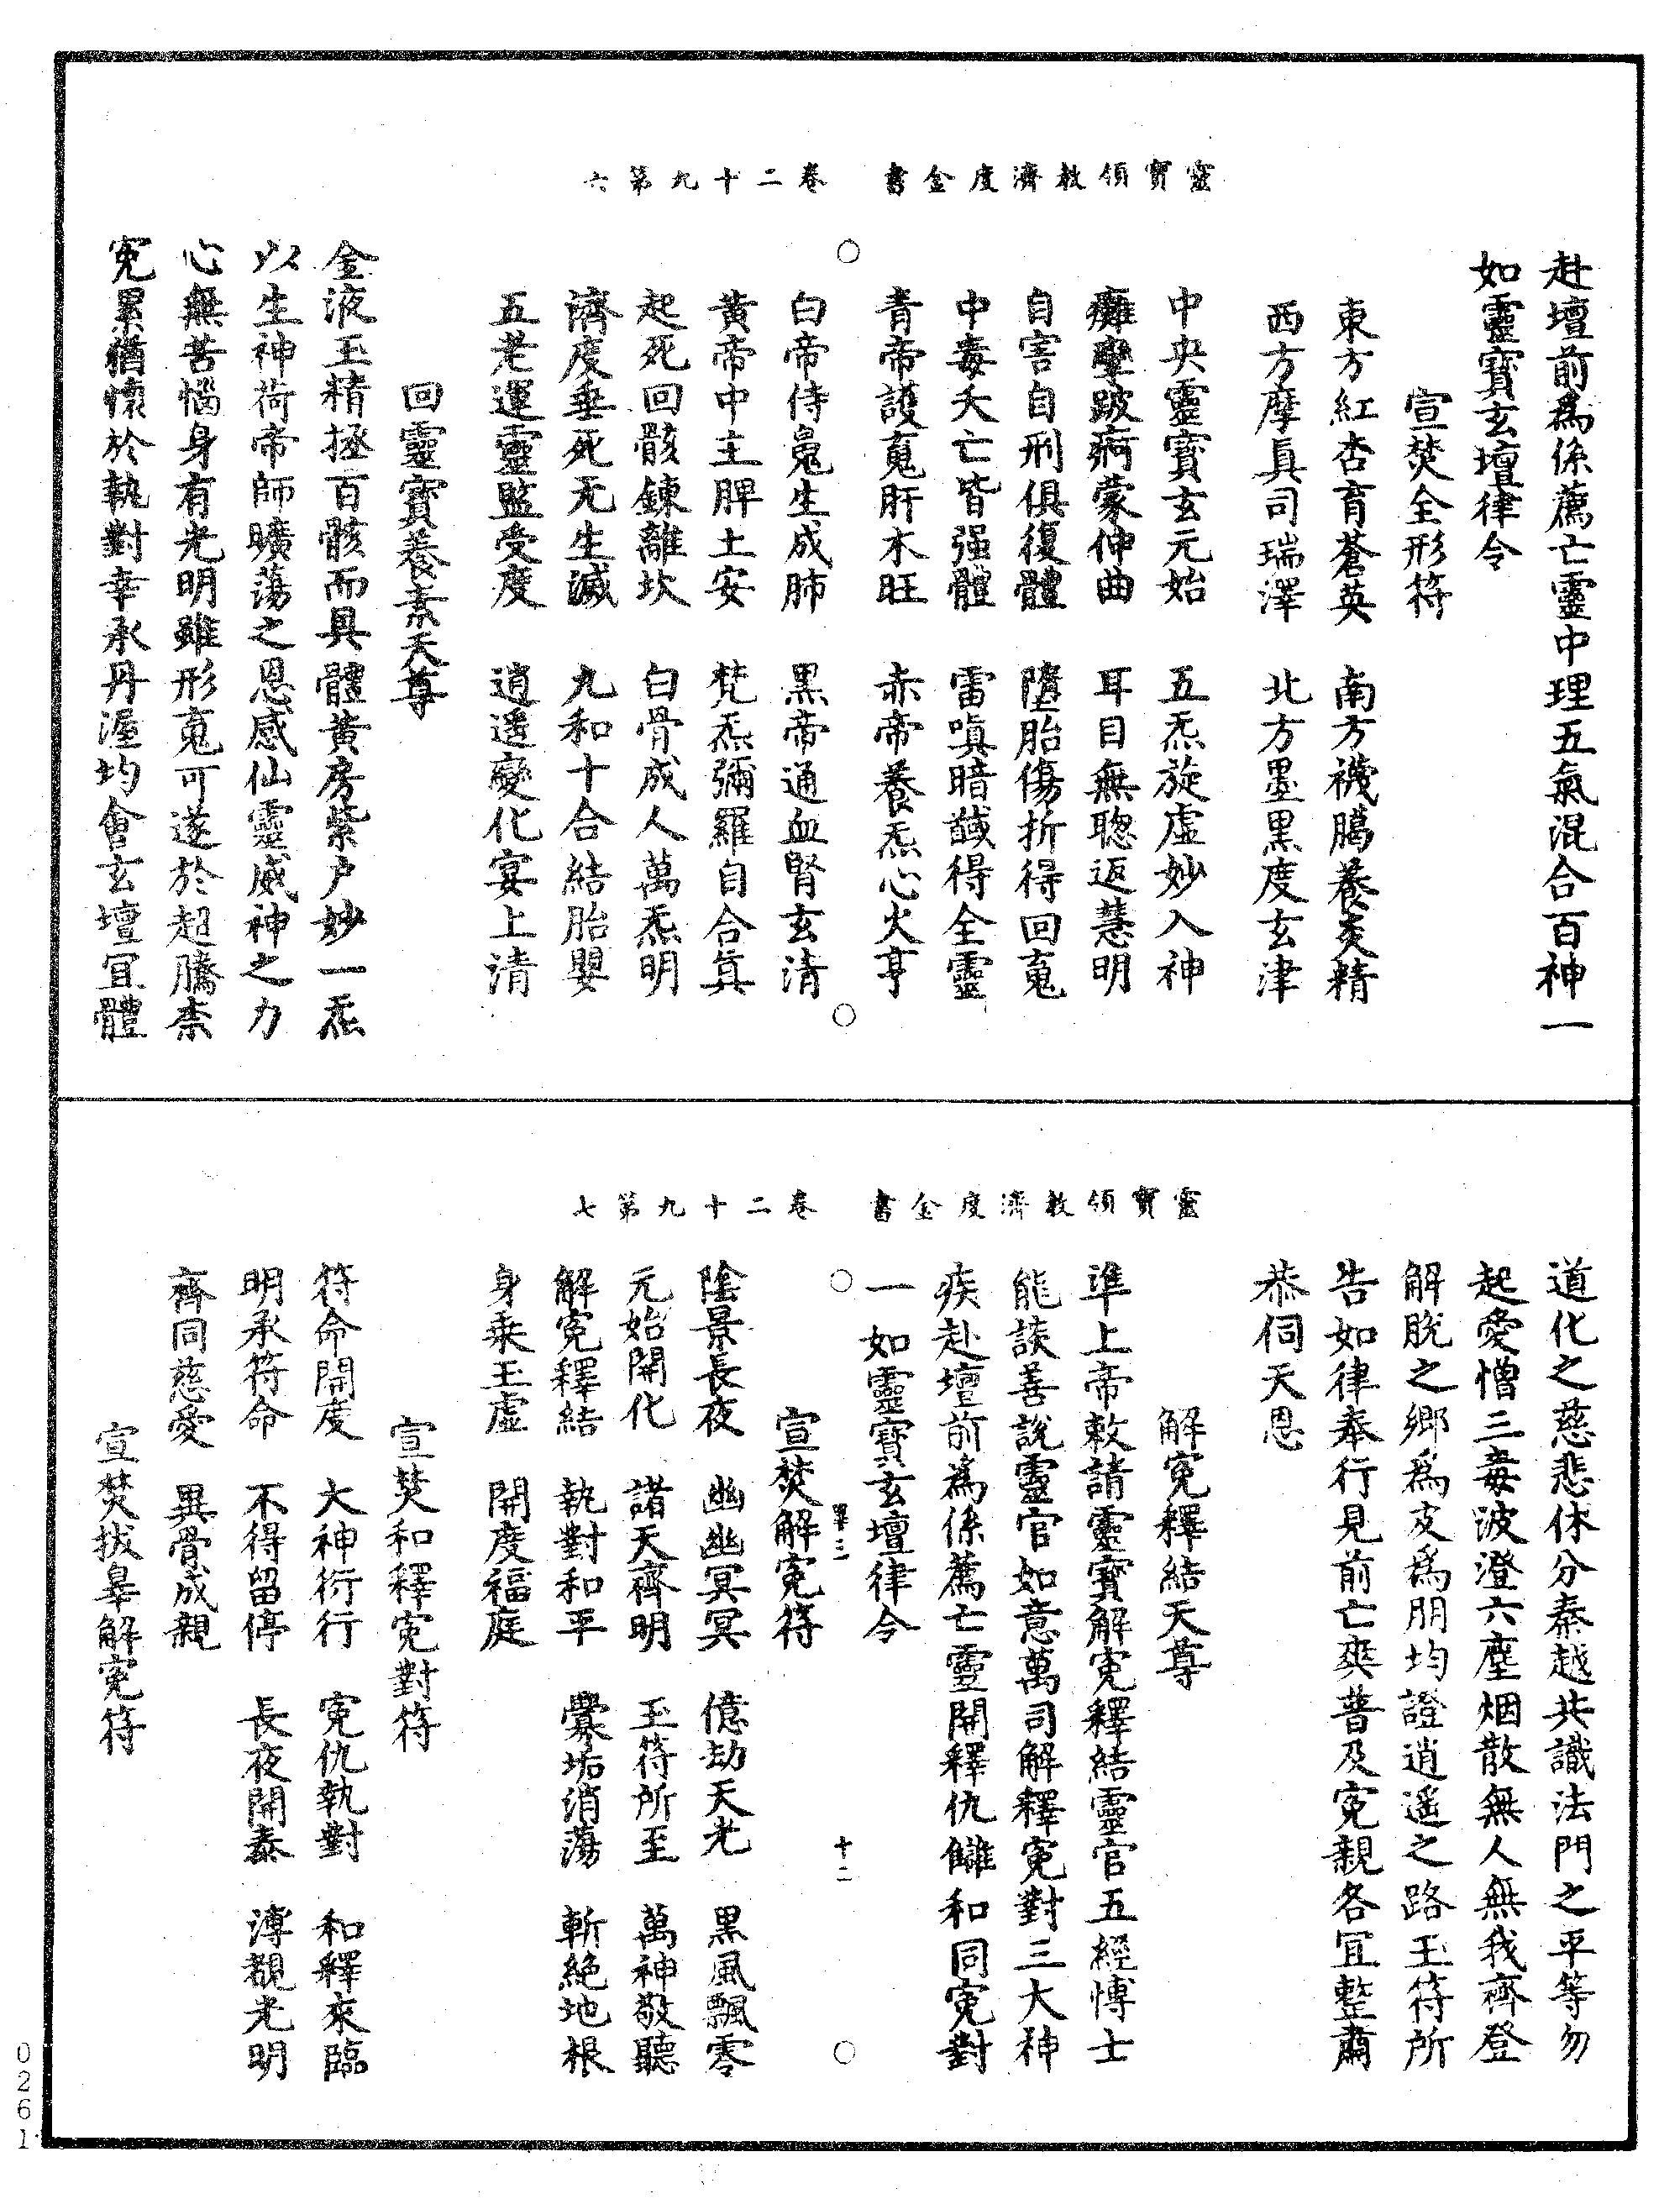 靈寶領教濟度金書　卷二十九第六
赴壇前為係薦亡靈中理五氣混合百神一
如靈寶玄壇律令
宣焚全形符
東方紅杏育蒼英　南方禨臈養炎精
西方摩真司瑞澤　北方墨黑度玄津
中央靈寶玄元始　五炁旋虛妙入神
癱躄跛痾蒙伸曲　耳目無聰返慧明
自害自刑俱復體　墮胎傷折得回䰟
中毒夭亡皆强體　雷嗔暗馘得全靈
青帝護䰟肝木旺　赤帝養炁心火亨
白帝侍䰟生成肺　黑帝通血腎玄清
黃帝中主脾土安　梵炁彌羅自合真
起死回骸鍊離坎　白骨成人萬炁明
濟度垂死无生滅　九和十合結胎嬰
五老運靈監受度　逍遥變化宴上清
回靈寶養素天尊
金液玉精拯百骸而具體黃房紫户妙一炁
以生神荷帝師曠蕩之恩感仙靈威神之力
心無苦惱身有光明雖形䰟可遂於超騰柰
寃累猶懷於執對幸承丹渥均會玄壇宜體
靈寶領教濟度金書　卷二十九第七
道化之慈悲休分秦越共識法門之平等勿
起愛憎三毒波澄六塵烟散無人無我齊登
解脫之鄉為友為朋均證逍遥之路玉符所
告如律奉行見前亡爽普及寃親各宜整肅
恭伺天恩
解寃釋結天尊
準上帝敕請靈寶解寃釋結靈官五經博士
能談善說靈官如意萬司解釋寃對三大神
疾赴壇前為係薦亡靈開釋仇讎和同寃對
一如靈寶玄壇律令
單三　十二
宣焚解寃符
陰景長夜　幽幽冥冥　億劫天光　黑風飄零
元始開化　諸天齊明　玉符所至　萬神敬聽
解寃釋結　執對和平　釁垢消蕩　斬絶地根
身乘玉虛　開度福庭
宣焚和釋寃對符
符命開度　大神衍行　寃仇執對　和釋來臨
明承符命　不得留停　長夜開泰　溥覩光明
齊同慈愛　異骨成親
宣焚拔辠解寃符
0261